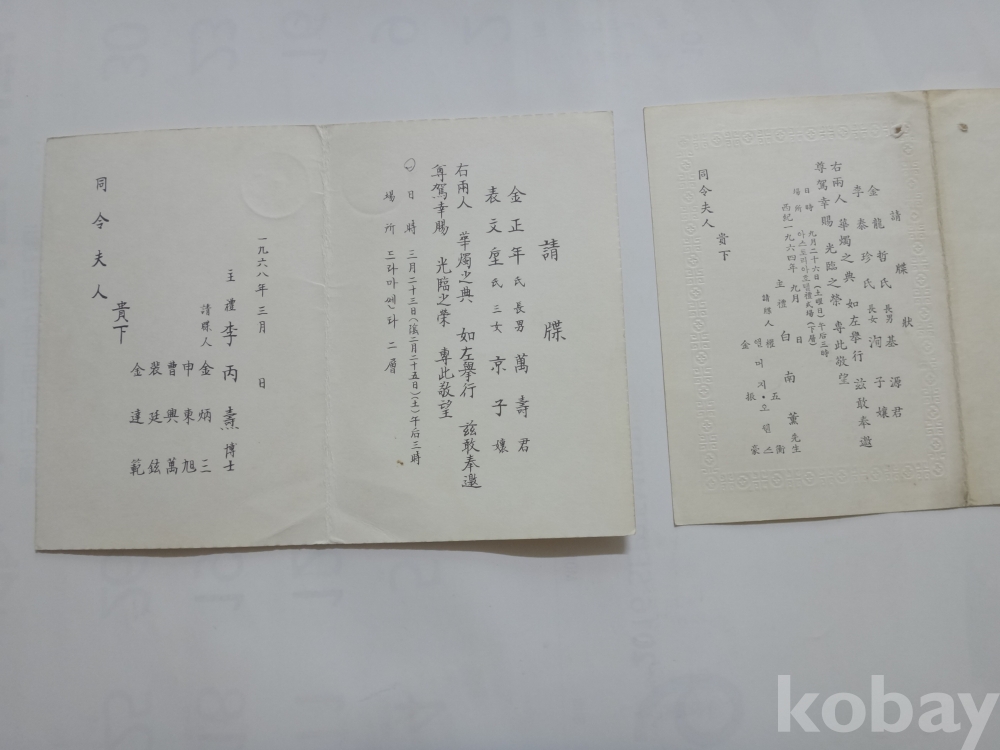 請牒
金正年氏長男 萬壽君
表文㘴氏三女 京子孃
右兩人 華燭之典 如左擧行 玆敢奉邀
尊駕幸賜 光臨之榮 專此敬望
日時 三月二十三日(陰二月二十五日)(土)午后三時
場所 드라마쎈타 二層
一九六八年 三月 日
主禮 李丙燾博士
請牒人 金炳三
申東旭
曹興萬
裴廷鉉
金達範
同令夫人 貴下
請牒狀
金龍哲氏長男 基源君
李泰珍氏長女 洵子孃
右兩人 華燭之典 如左擧行 玆敢奉邀
尊駕幸賜 光臨之榮 專此敬望
日時 九月二十六日(土曜日)午后三時
場所 아스토리아호텔禮式場(下層)
西紀一九六四年 九月 日
主禮 白南薰先生
請牒人 權五衡
金振豪
同令夫人 貴下
kobay